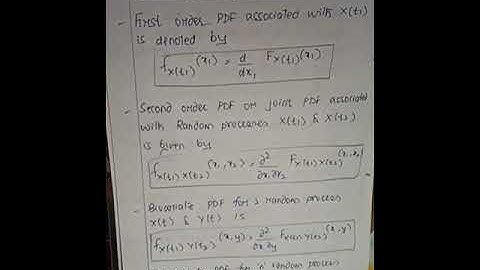 - First order PDF associated with X(t₁)
is denoted by
f_X(t₁)^(x₁) = d/dx₁ F_X(t₁)^(x₁)
- Second order PDF or joint PDF associated
with Random processes X(t₁) & X(t₂)
is given by
f_X(t₁)X(t₂)^(x₁,x₂) = ∂²/∂x₁∂x₂ F_X(t₁)X(t₂)^(x₁,x₂)
- Bivariate PDF for 2 random process
X(t) & Y(t) is
f_X(t₁)Y(t₂)^(x,y) = ∂²/∂x∂y F_X(t₁)Y(t₂)^(x,y)
PDF for 'n' random process